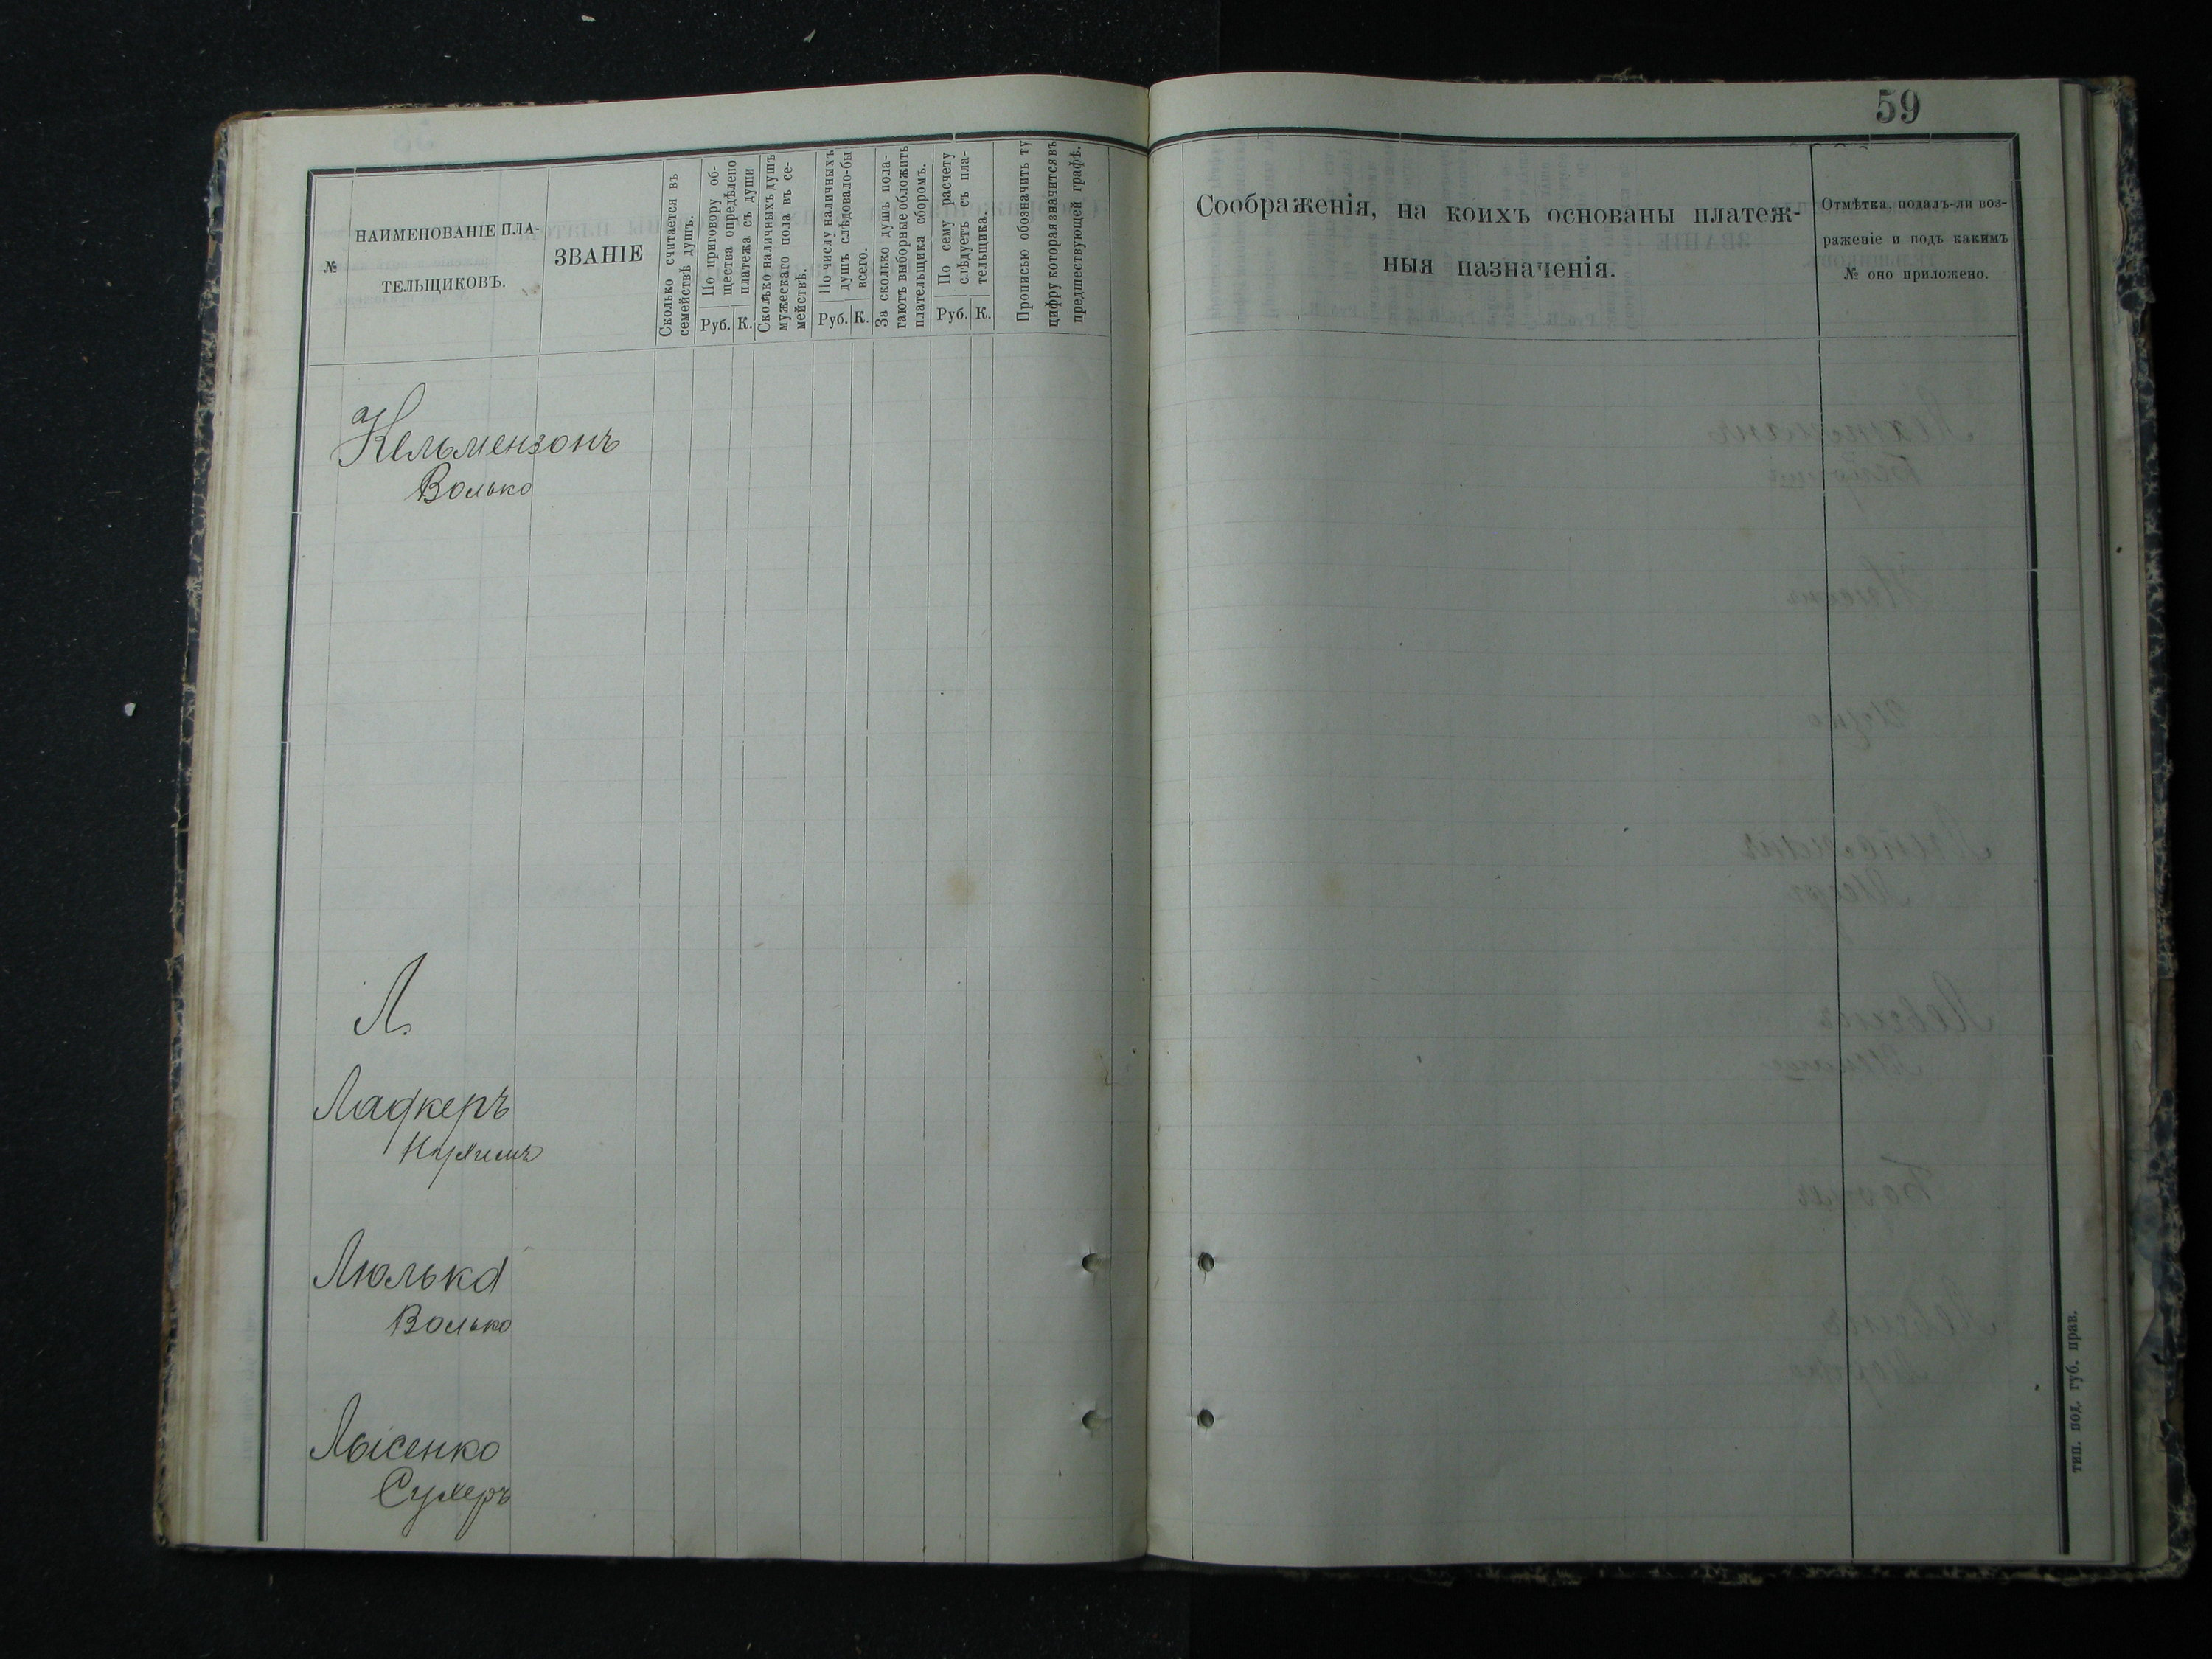 59
№
НАИМЕНОВАНІЕ ПЛА-
ТЕЛЬЩИКОВЪ.
ЗВАНІЕ
Сколько считается въ
семействѣ душъ.
По приговору об-
щества опредѣлено
платежа съ души
Руб. К.
Сколько наличныхъ душъ
мужескаго пола въ се-
мействѣ.
По числу наличныхъ
душъ слѣдовало-бы
всего.
Руб. К.
За сколько душъ пола-
гаютъ выборные обложить
плательщика сборомъ.
По сему расчету
слѣдуетъ съ пла-
тельщика.
Руб. К.
Прописью обозначить ту
цифру которая значится въ
предшествующей графѣ.
Соображенія, на коихъ основаны платеж-
ныя назначенія.
Отмѣтка, подалъ-ли воз-
раженіе и подъ какимъ
№ оно приложено.
Кельмензонъ
Волько
Л.
Ладкеръ
Люлька
Волько
Лысенко
Сухеръ
тип. под. губ. прав.